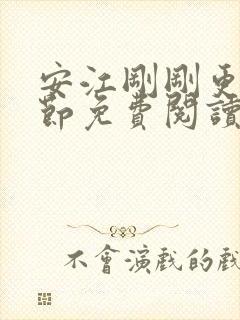 安江剛剛更
節免費閱讀
不會演戲的戲